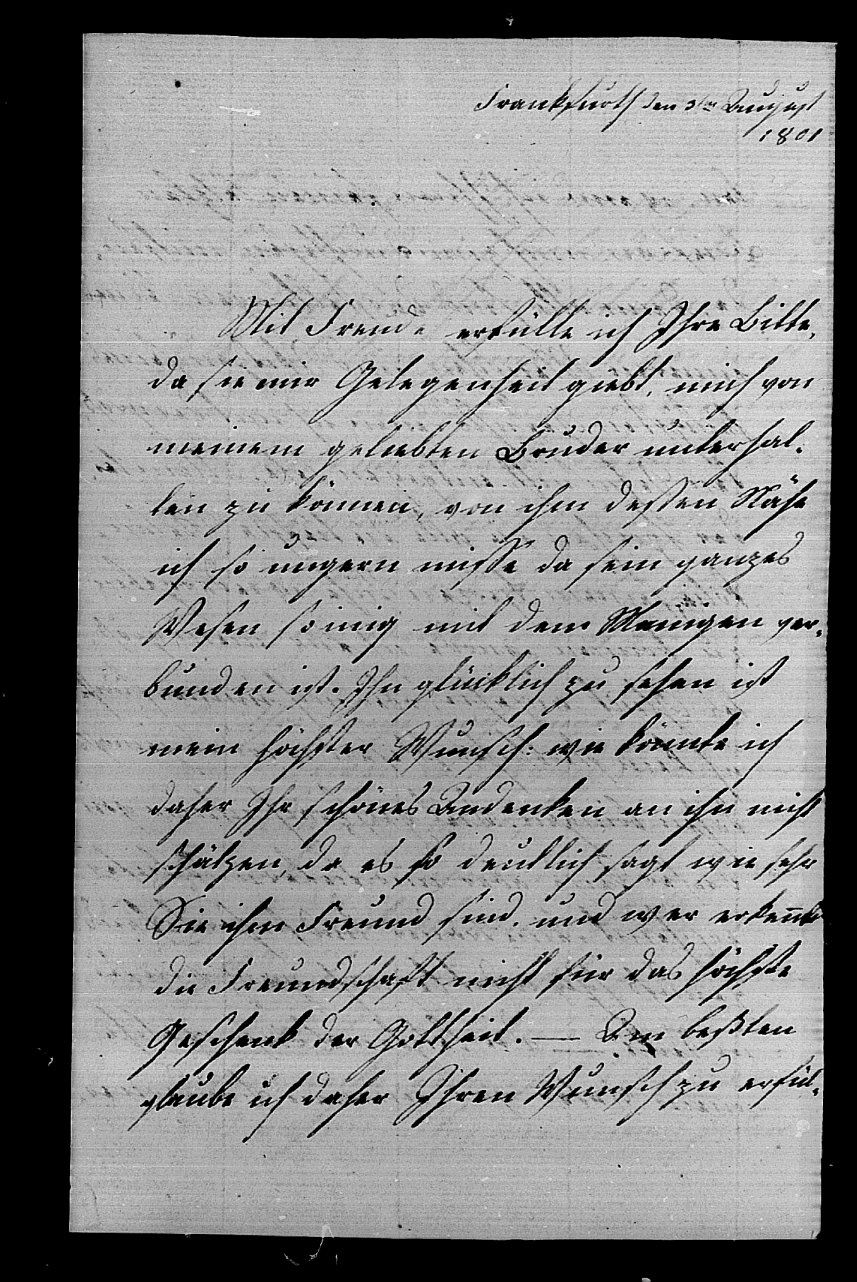 Frankfurth den 3ten August
1801
Mit Freude erfülle ich Ihre Bitte,
da sie mir Gelegenheit giebt, mich von
meinem geliebten Bruder unterhal-
ten zu können, von ihm dessen Nähe
ich so ungern misse da sein ganzes
Wesen so innig mit dem Meinigen ver-
bunden ist. Ihn glücklich zu sehen ist
mein höchster Wunsch: wie könnte ich
daher Ihr schönes Andenken an ihn nicht
schätzen, da es so deutlich sagt wie sehr
Sie ihm Freund sind, und wer erkennt
die Freundschaft nicht für das höchste
Geschenk der Gottheit. — Am beßten
glaube ich daher Ihren Wunsch zu erfül-